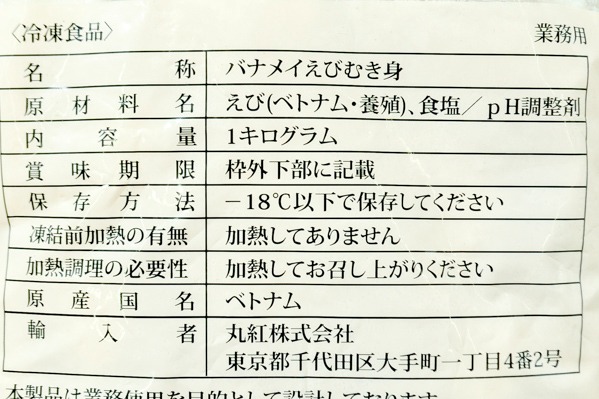 〈冷凍食品〉 業務用
名称 バナメイえびむき身
原材料名 えび(ベトナム・養殖)、食塩／pH調整剤
内容量 1キログラム
賞味期限 枠外下部に記載
保存方法 −18℃以下で保存してください
凍結前加熱の有無 加熱してありません
加熱調理の必要性 加熱してお召し上がりください
原産国名 ベトナム
輸入者 丸紅株式会社
東京都千代田区大手町一丁目4番2号
本製品は業務使用を目的として設計しております。